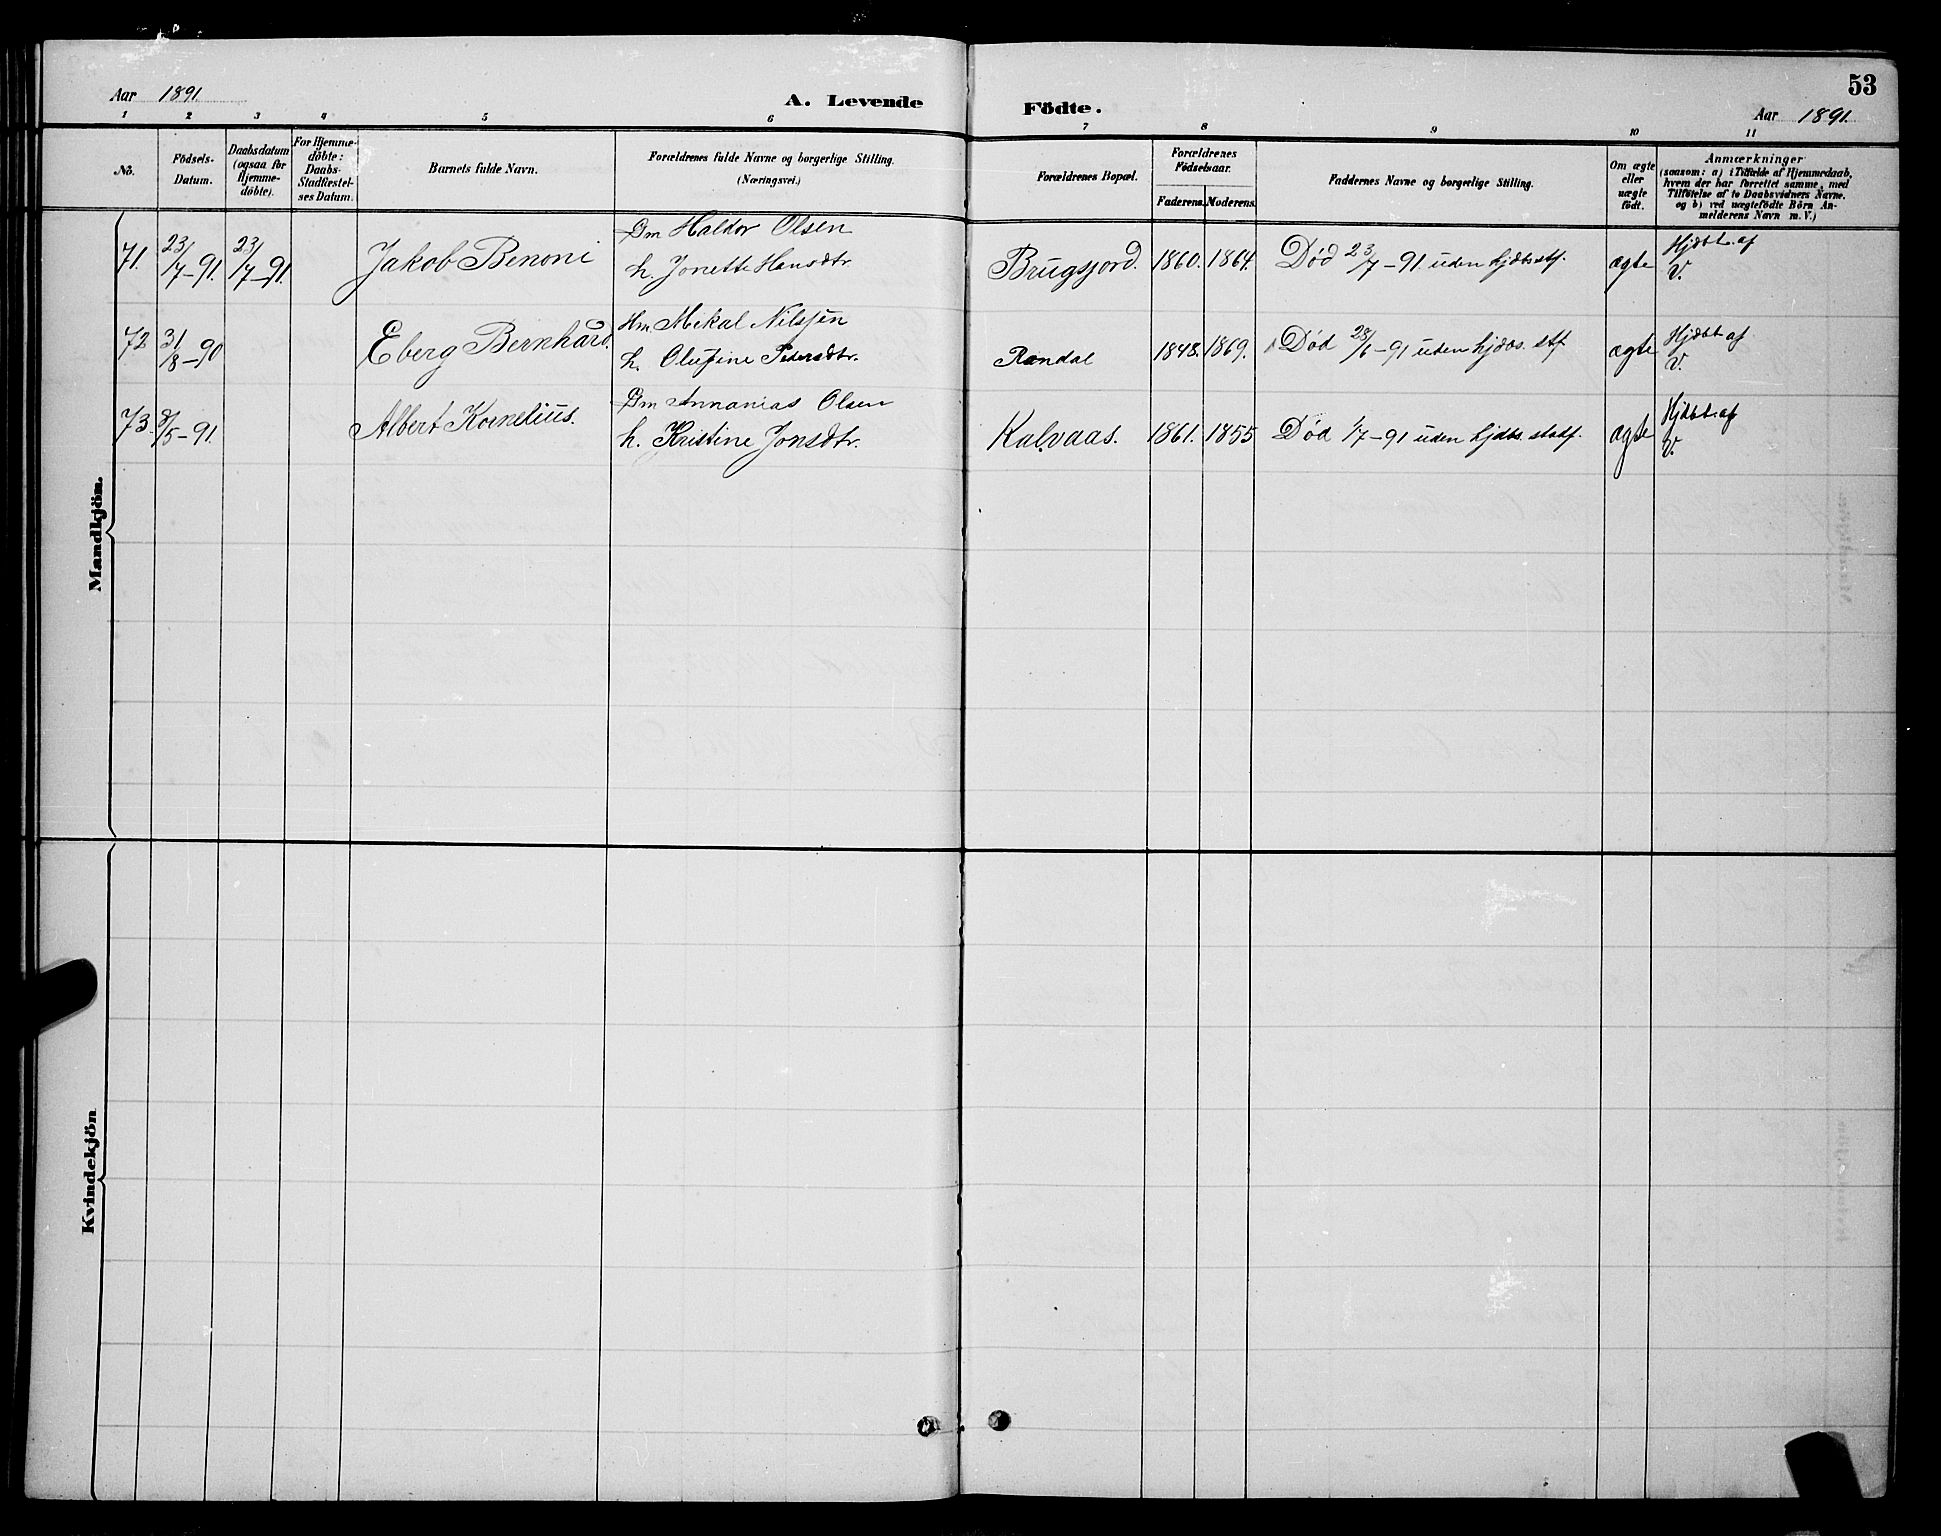 53
Aar 1891.
A. Levende
Födte.
Aar 1891.
1 2 3 4 5 6 7 8 9 10 11
No.
Födsels-
Datum.
Daabsdatum
(ogsaa for
Hjemme-
döbte).
For Hjemme-
döbte:
Daabs-
Stadfæstel-
ses Datum.
Barnets fulde Navn.
Forældrenes fulde Navne og borgerlige Stilling.
(Næringsvei.)
Forældrenes Bopæl.
Forældrenes
Födselsaar.
Faderens. Moderens.
Faddernes Navne og borgerlige Stilling.
Om ægte
eller
uægte
födt.
Anmærkninger
(saasom: a) i Tilfælde af Hjemmedaab,
hvem der har forrettet samme, med
Tilföielse af to Daabsvidners Navne.
og b) ved uægtefödte Börn An-
melderens Navn m.V.)
Mandkjön.
71. 23/7-91. 23/7-91. Jakob Benoni
Gm Haldor Olsen
h. Jonette Hansdtr.
Brugsjord. 1860. 1864. Død 23/7-91. uden hjdbs stf. ægte
Hjdbt. af
V.
72 31/8-90 Eberg Bernhard.
Hm Mikal Nilsen
h. Olufine Pedersdtr.
Rændal 1848. 1869. Død 28/6-91 uden hjdbs. stf. ægte
Hjdbt af
V.
73. 8/5-91. Albert Kornelius.
Gm Annanias Olsen
h. Kristine Jonsdtr.
Kalvaas. 1861. 1855 Død 1/7-91 uden hjdbs. stadf. ægte
Hjdbt. af
V.
Kvindekjön